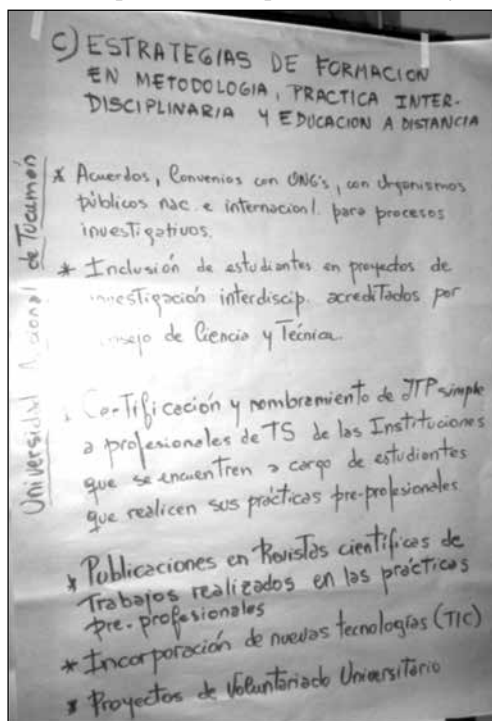 C) ESTRATEGIAS DE FORMACION
EN METODOLOGIA, PRACTICA INTER-
DISCIPLINARIA Y EDUCACION A DISTANCIA
* Acuerdos, Convenios con ONG's, con Organismos
públicos nac. e internacionl. para procesos
investigativos.
* Inclusión de estudiantes en proyectos de
investigación interdiscip. acreditados por
de Ciencia y Técnica.
. Certificación y nombramiento de JTP simple
a profesionales de TS de las Instituciones
que se encuentren a cargo de estudiantes
que realicen sus prácticas pre-profesionales
* Publicaciones en Revistas científicas de
Trabajos realizados en las prácticas
pre-profesionales
* Incorporación de nuevas tecnologías (TIC)
* Proyectos de Voluntariado Universitario
Universidad Nacional de Tucumán